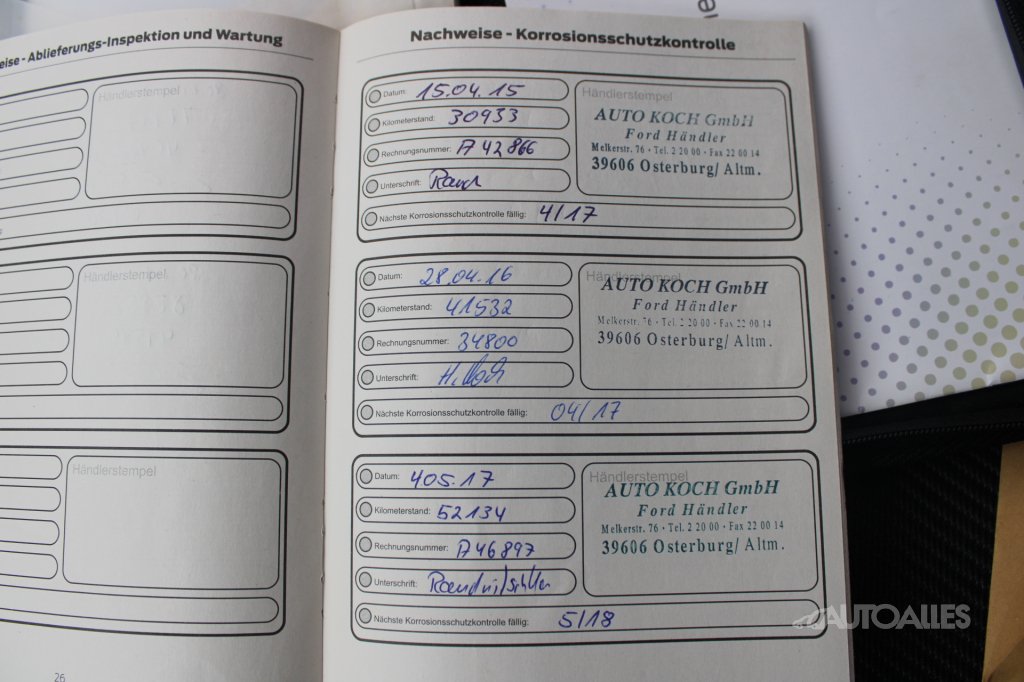 eise - Ablieferungs-Inspektion und Wartung
Händlerstempel
Händlerstempel
Händlerstempel
26
Nachweise - Korrosionsschutzkontrolle
Datum: 15.04.15
Kilometerstand: 30933
Rechnungsnummer: A 42866
Unterschrift:
Nächste Korrosionsschutzkontrolle fällig: 4/17
Händlerstempel
AUTO KOCH GmbH
Ford Händler
Melkerstr. 76 • Tel. 2 20 00 • Fax 22 00 14
39606 Osterburg/ Altm.
Datum: 28.04.16
Kilometerstand: 41532
Rechnungsnummer: 34800
Unterschrift:
Nächste Korrosionsschutzkontrolle fällig: 04/17
Händlerstempel
AUTO KOCH GmbH
Ford Händler
Melkerstr. 76 • Tel. 2 20 00 • Fax 22 00 14
39606 Osterburg/ Altm.
Datum: 405.17
Kilometerstand: 52134
Rechnungsnummer: A46897
Unterschrift:
Nächste Korrosionsschutzkontrolle fällig: 5/18
Händlerstempel
AUTO KOCH GmbH
Ford Händler
Melkerstr. 76 • Tel. 2 20 00 • Fax 22 00 14
39606 Osterburg/ Altm.
AUTOALLES